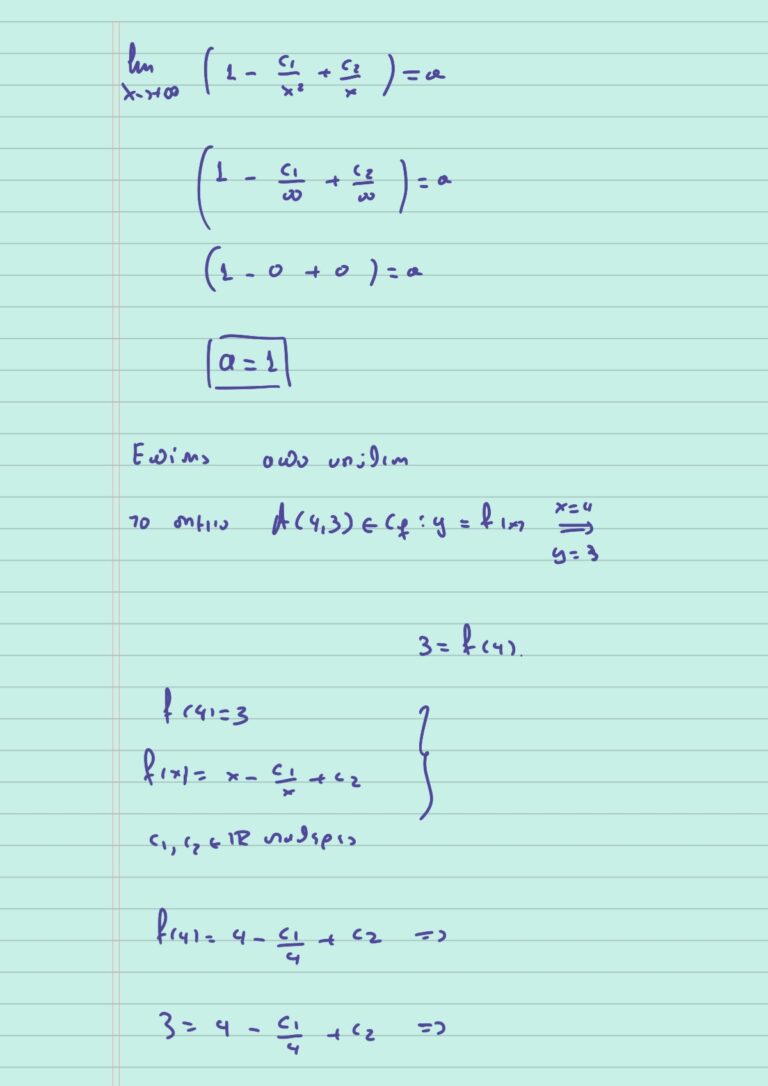 lim x→+∞ (1 - c₁/x² + c₂/x) = a
(1 - c₁/∞ + c₂/∞) = a
(1 - 0 + 0) = a
a = 1
Επίσης από υπόθεση
το σημείο A(4,3) ∈ Cf : y = f(x) x=4 ⟹ y=3
3 = f(4).
f(4) = 3
f(x) = x - c₁/x + c₂
c₁, c₂ ∈ ℝ σταθερές
f(4) = 4 - c₁/4 + c₂ =>
3 = 4 - c₁/4 + c₂ =>